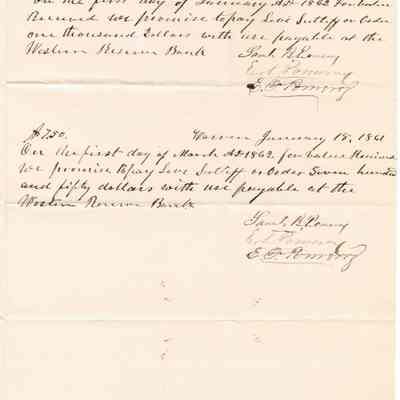 On the first day of January AD 1862 for value
Received we promise to pay Levi Sutliff or Order
one thousand Dollars with use payable at the
Western Reserve Bank
Saml B Pomroy
E F Pomroy
$750. Warren January 18, 1861
On the first day of March AD 1862 for value Received
We promise to pay Levi Sutliff or Order Seven hundred
and fifty dollars with use payable at the
Western Reserve Bank
Saml B Pomroy
E F Pomroy